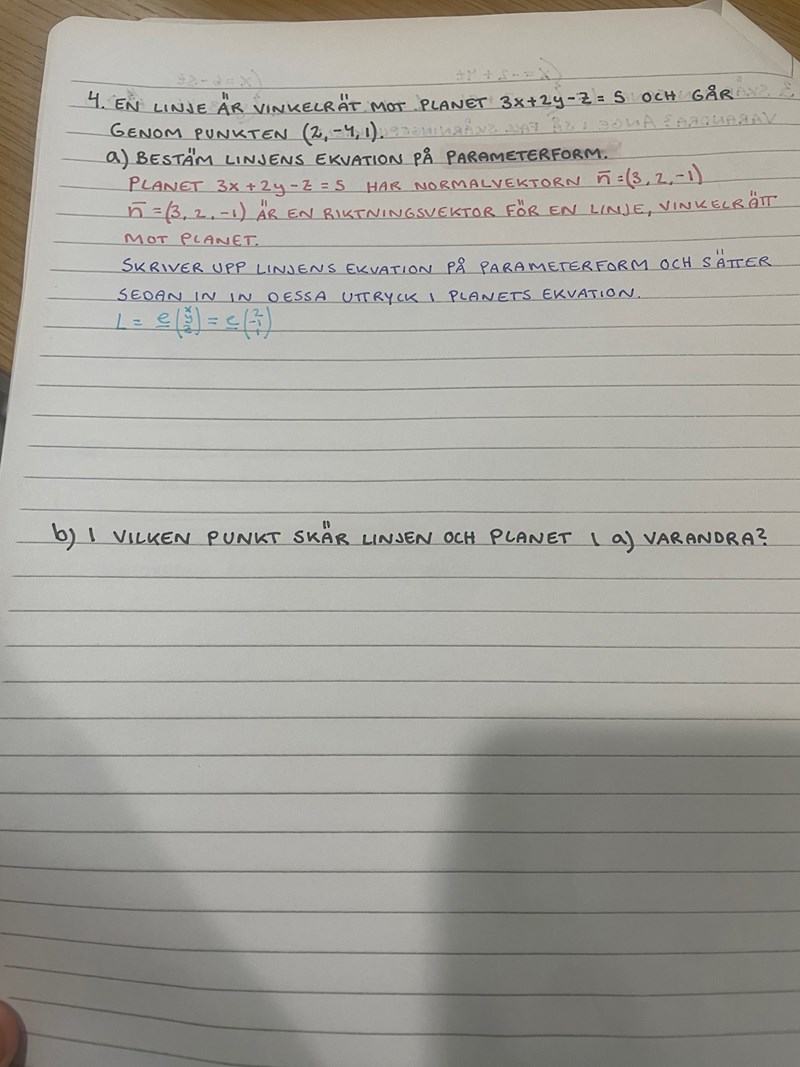 4. EN LINJE ÄR VINKELRÄT MOT PLANET 3x+2y-z=5 OCH GÅR
GENOM PUNKTEN (2,-4,1).
a) BESTÄM LINJENS EKVATION PÅ PARAMETERFORM.
PLANET 3x+2y-z=5 HAR NORMALVEKTORN n̄=(3,2,-1)
n̄=(3,2,-1) ÄR EN RIKTNINGSVEKTOR FÖR EN LINJE, VINKELRÄTT
MOT PLANET.
SKRIVER UPP LINJENS EKVATION PÅ PARAMETERFORM OCH SÄTTER
SEDAN IN IN DESSA UTTRYCK I PLANETS EKVATION.
L = e(x y z) = e(2 -1 1)
b) I VILKEN PUNKT SKÄR LINJEN OCH PLANET I a) VARANDRA?